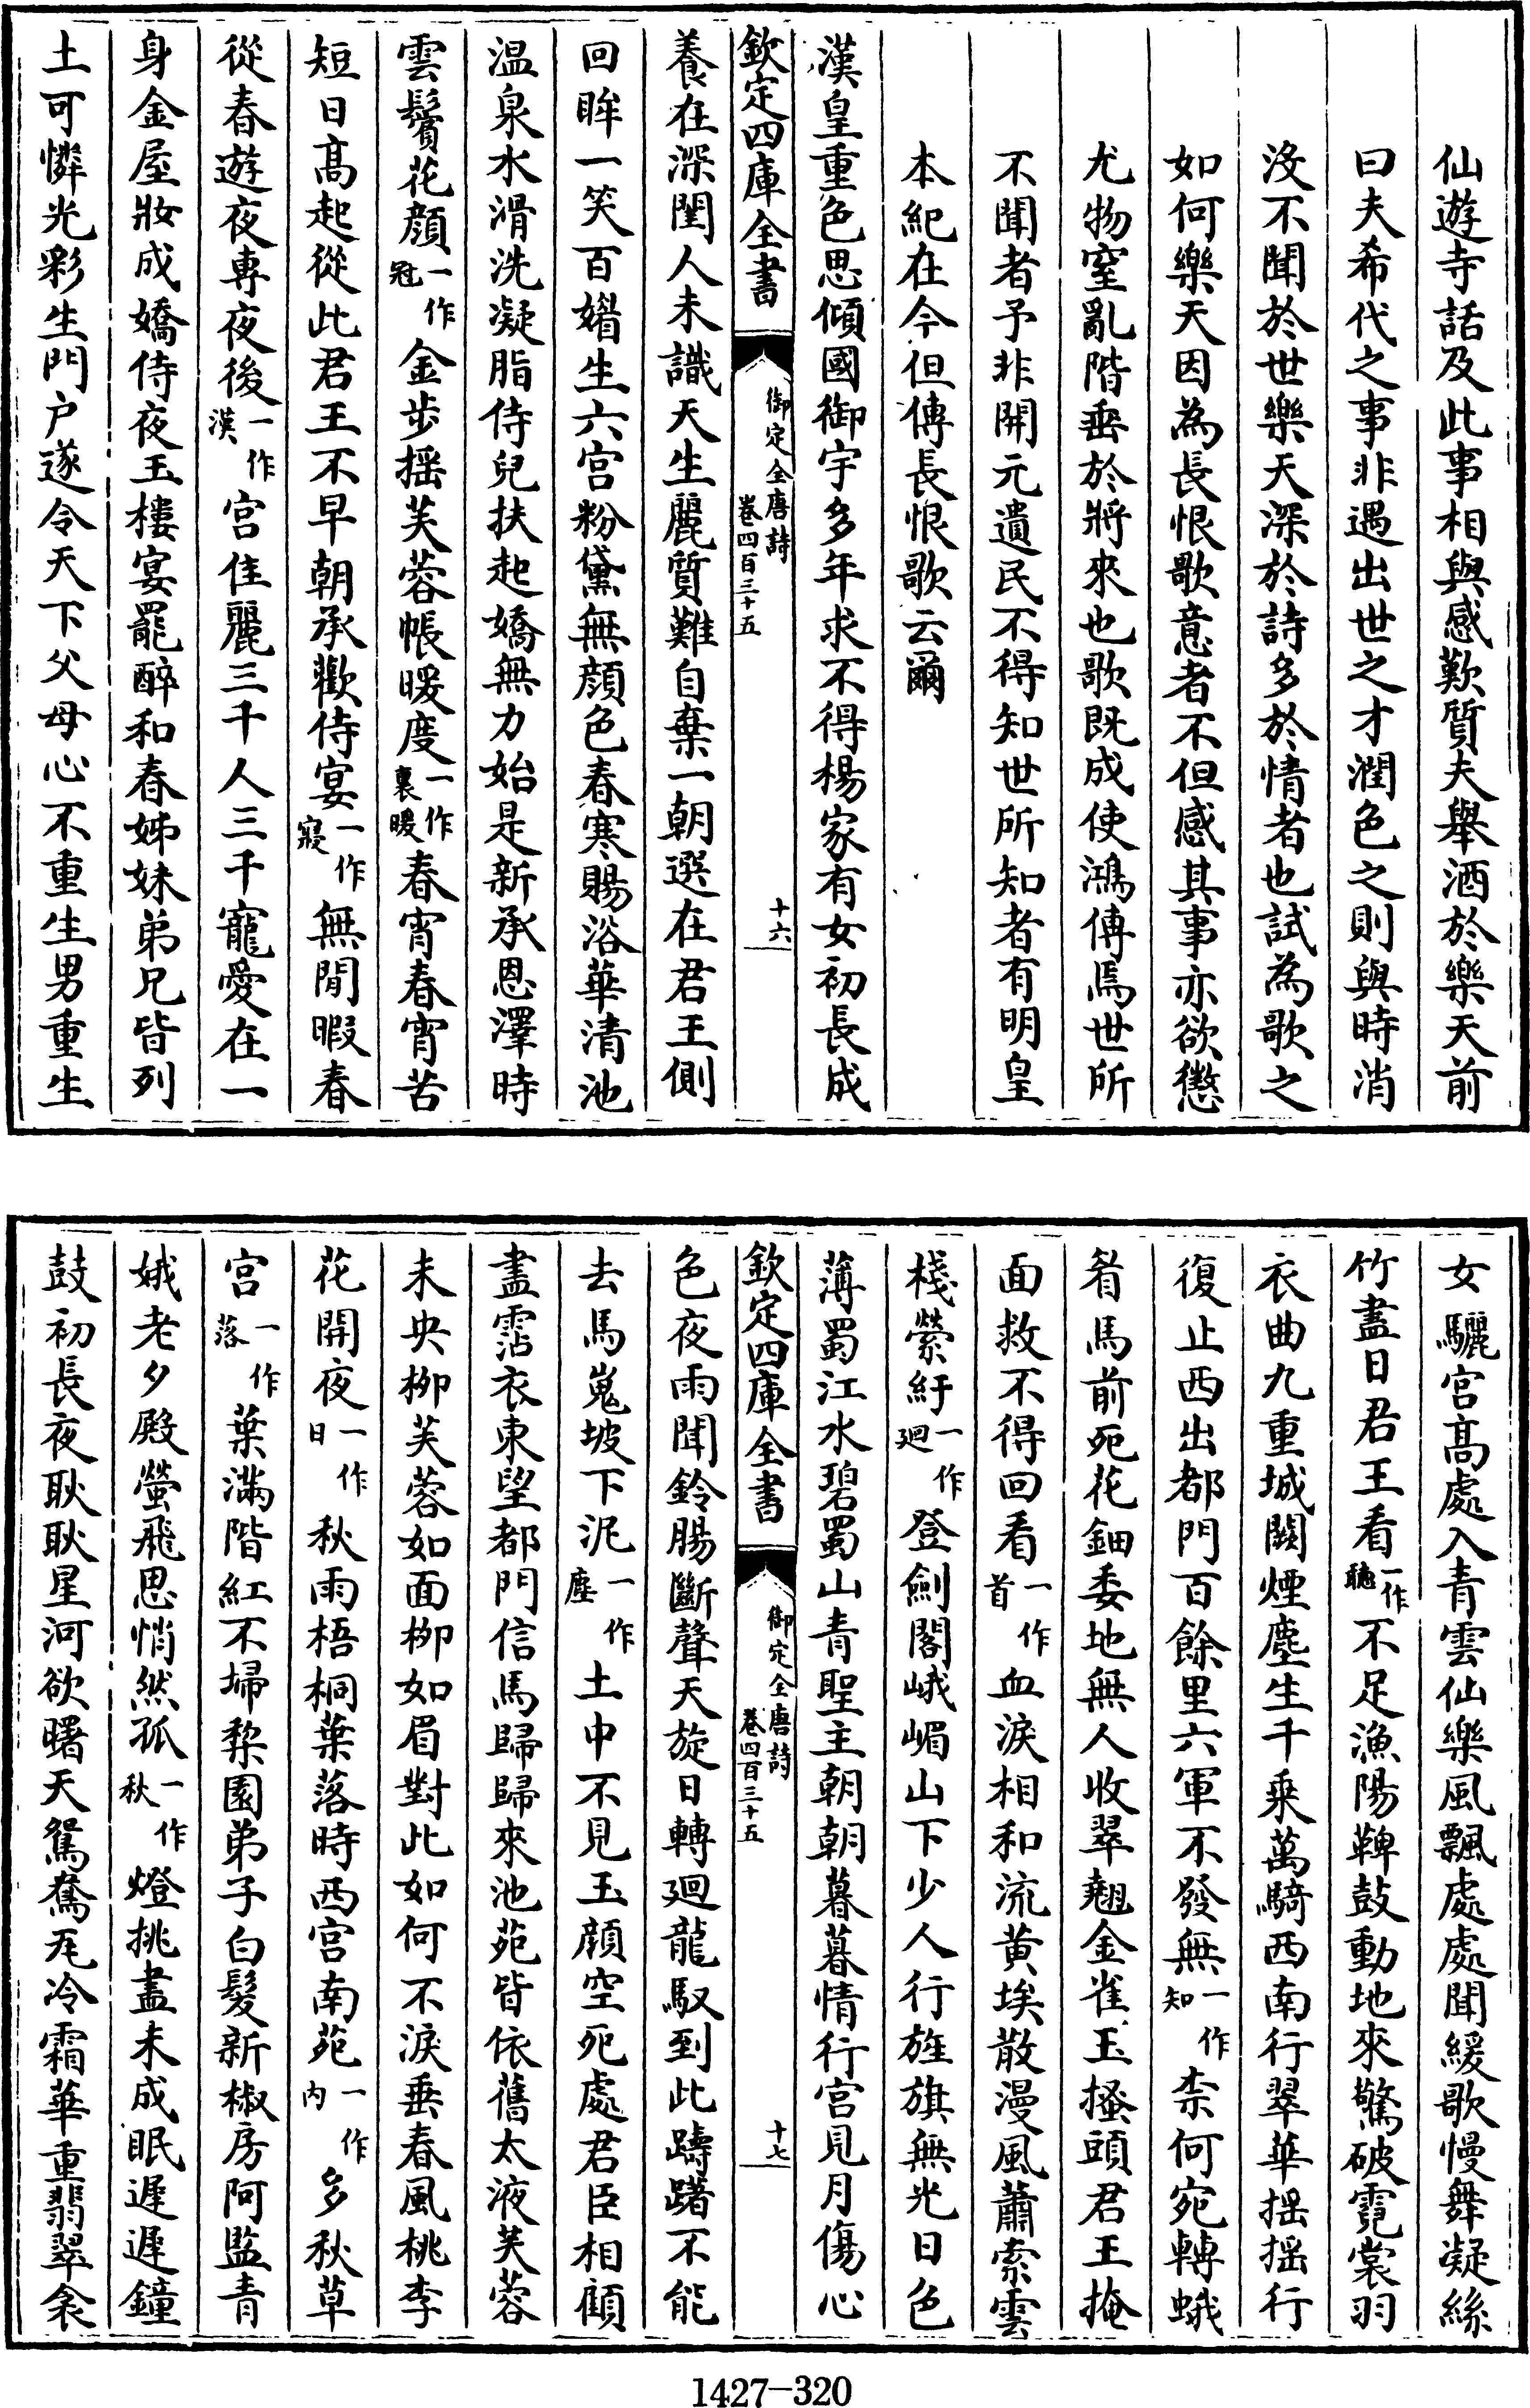 仙遊寺話及此事相與感歎質夫舉酒於樂天前
曰夫希代之事非遇出世之才潤色之則與時消
沒不聞於世樂天深於詩多於情者也試為歌之
如何樂天因為長恨歌意者不但感其事亦欲懲
尤物窒亂階垂於將來也歌既成使鴻傳焉世所
不聞者予非開元遺民不得知世所知者有明皇
本紀在今但傳長恨歌云爾
漢皇重色思傾國御宇多年求不得楊家有女初長成
欽定四庫全書 御定全唐詩 卷四百三十五 十六
養在深閨人未識天生麗質難自棄一朝選在君王側
回眸一笑百媚生六宫粉黛無顔色春寒賜浴華清池
温泉水滑洗凝脂侍兒扶起嬌無力始是新承恩澤時
雲鬢花顔一作冠金步摇芙蓉帳暖度一作裏暖春宵春宵苦
短日高起從此君王不早朝承歡侍宴一作寢無閒暇春
從春遊夜專夜後一作漢宫佳麗三千人三千寵愛在一
身金屋妝成嬌侍夜玉樓宴罷醉和春姊妹弟兄皆列
土可憐光彩生門户遂令天下父母心不重生男重生
女驪宫高處入青雲仙樂風飄處處聞緩歌慢舞凝絲
竹盡日君王看一作聽不足漁陽鞞鼓動地來驚破霓裳羽
衣曲九重城闕煙塵生千乘萬騎西南行翠華摇摇行
復止西出都門百餘里六軍不發無一作知柰何宛轉蛾
眉馬前死花鈿委地無人收翠翹金雀玉搔頭君王掩
面救不得回看一作首血淚相和流黄埃散漫風蕭索雲
棧縈紆一作廻登劍閣峨嵋山下少人行旌旗無光日色
薄蜀江水碧蜀山青聖主朝朝暮暮情行宫見月傷心
欽定四庫全書 御定全唐詩 卷四百三十五 十七
色夜雨聞鈴腸斷聲天旋日轉廻龍馭到此躊躇不能
去馬嵬坡下泥一作塵土中不見玉顔空死處君臣相顧
盡霑衣東望都門信馬歸歸來池苑皆依舊太液芙蓉
未央柳芙蓉如面柳如眉對此如何不淚垂春風桃李
花開夜一作日秋雨梧桐葉落時西宫南苑一作内多秋草
宫一作落葉滿階紅不埽棃園弟子白髮新椒房阿監青
娥老夕殿螢飛思悄然孤一作秋燈挑盡未成眠遲遲鐘
鼓初長夜耿耿星河欲曙天鴛鴦瓦冷霜華重翡翠衾
1427-320